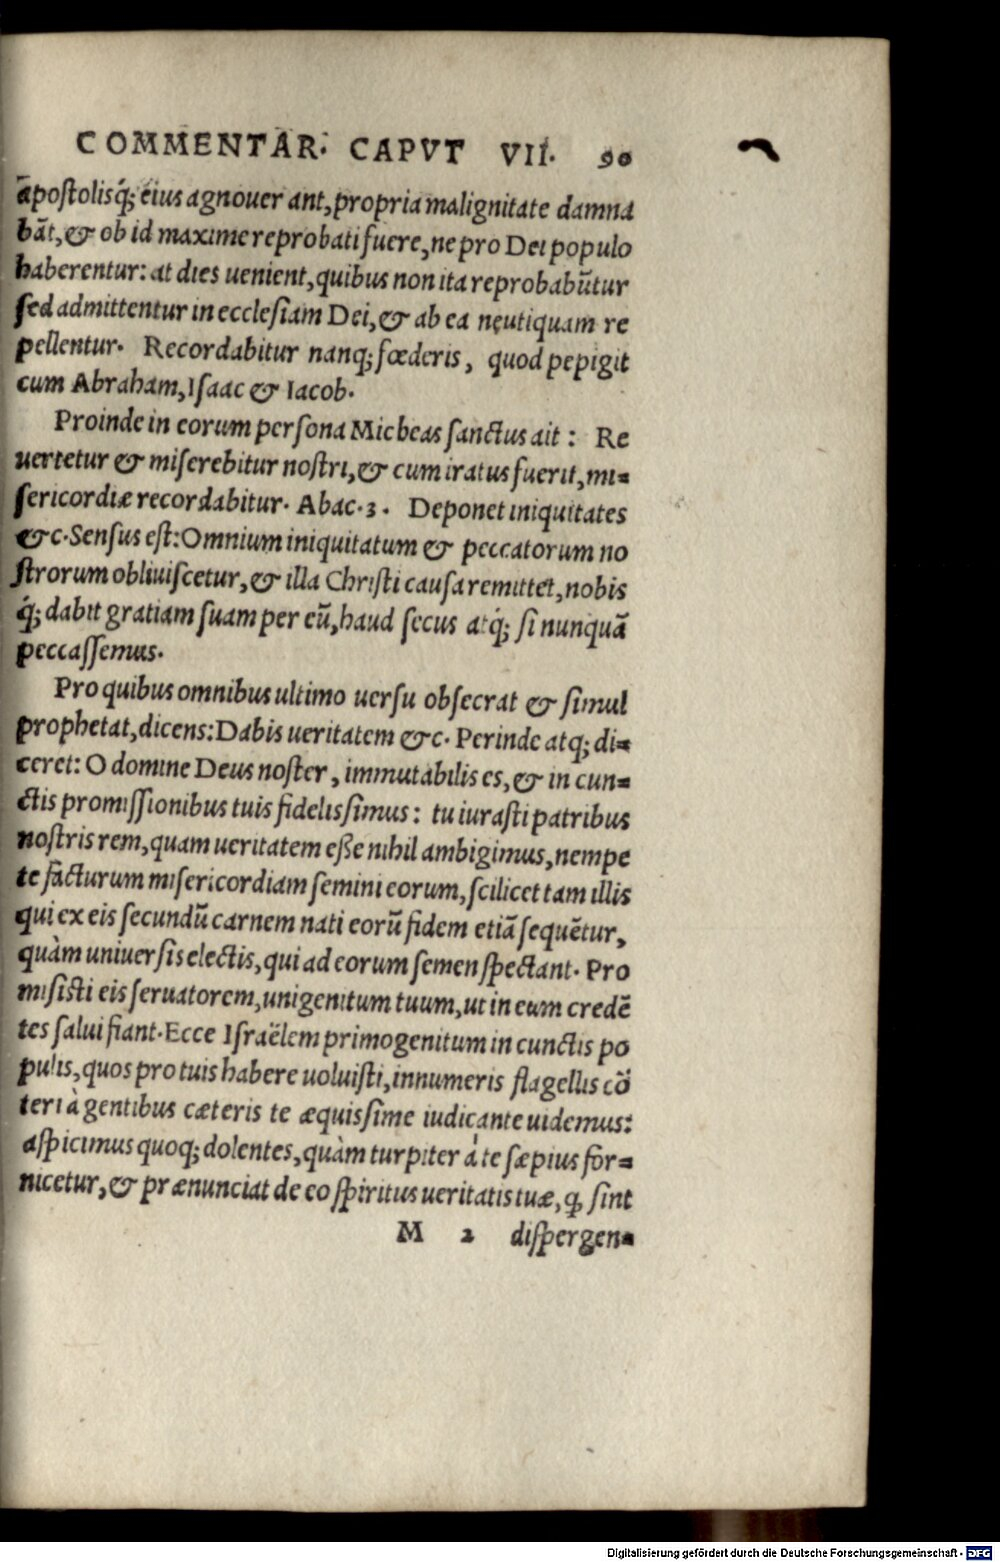 COMMENTAR. CAPVT VII. 90
apostolisq́; eius agnouerant, propria malignitate damna
bāt, & ob id maxime reprobati fuere, ne pro Dei populo
haberentur: at dies uenient, quibus non ita reprobabūtur
sed admittentur in ecclesiam Dei, & ab ea neutiquam re
pellentur. Recordabitur nanq; fœderis, quod pepigit
cum Abraham, Isaac & Iacob.
Proinde in eorum persona Micheas sanctus ait: Re
uertetur & miserebitur nostri, & cum iratus fuerit, mi-
sericordiæ recordabitur. Abac. 3. Deponet iniquitates
&c. Sensus est: Omnium iniquitatum & peccatorum no
strorum obliuiscetur, & illa Christi causa remittet, nobis
q́; dabit gratiam suam per eū, haud secus atq́; si nunquā
peccassemus.
Pro quibus omnibus ultimo uersu obsecrat & simul
prophetat, dicens: Dabis ueritatem &c. Perinde atq; di-
ceret: O domine Deus noster, immutabilis es, & in cun-
ctis promissionibus tuis fidelissimus: tu iurasti patribus
nostris rem, quam ueritatem eße nihil ambigimus, nempe
te facturum misericordiam semini eorum, scilicet tam illis
qui ex eis secundū carnem nati eorū fidem etiā sequētur,
quàm uniuersis electis, qui ad eorum semen spectant. Pro
misisti eis seruatorem, unigenitum tuum, ut in eum credē
tes salui fiant. Ecce Israëlem primogenitum in cunctis po
pulis, quos pro tuis habere uoluisti, innumeris flagellis cō
teri à gentibus cæteris te æquissime iudicante uidemus:
aspicimus quoq; dolentes, quàm turpiter à te sæpius for-
nicetur, & prænunciat de eo spiritus ueritatis tuæ, ꝙ sint
M 2 dispergen-
Digitalisierung gefördert durch die Deutsche Forschungsgemeinschaft - DFG